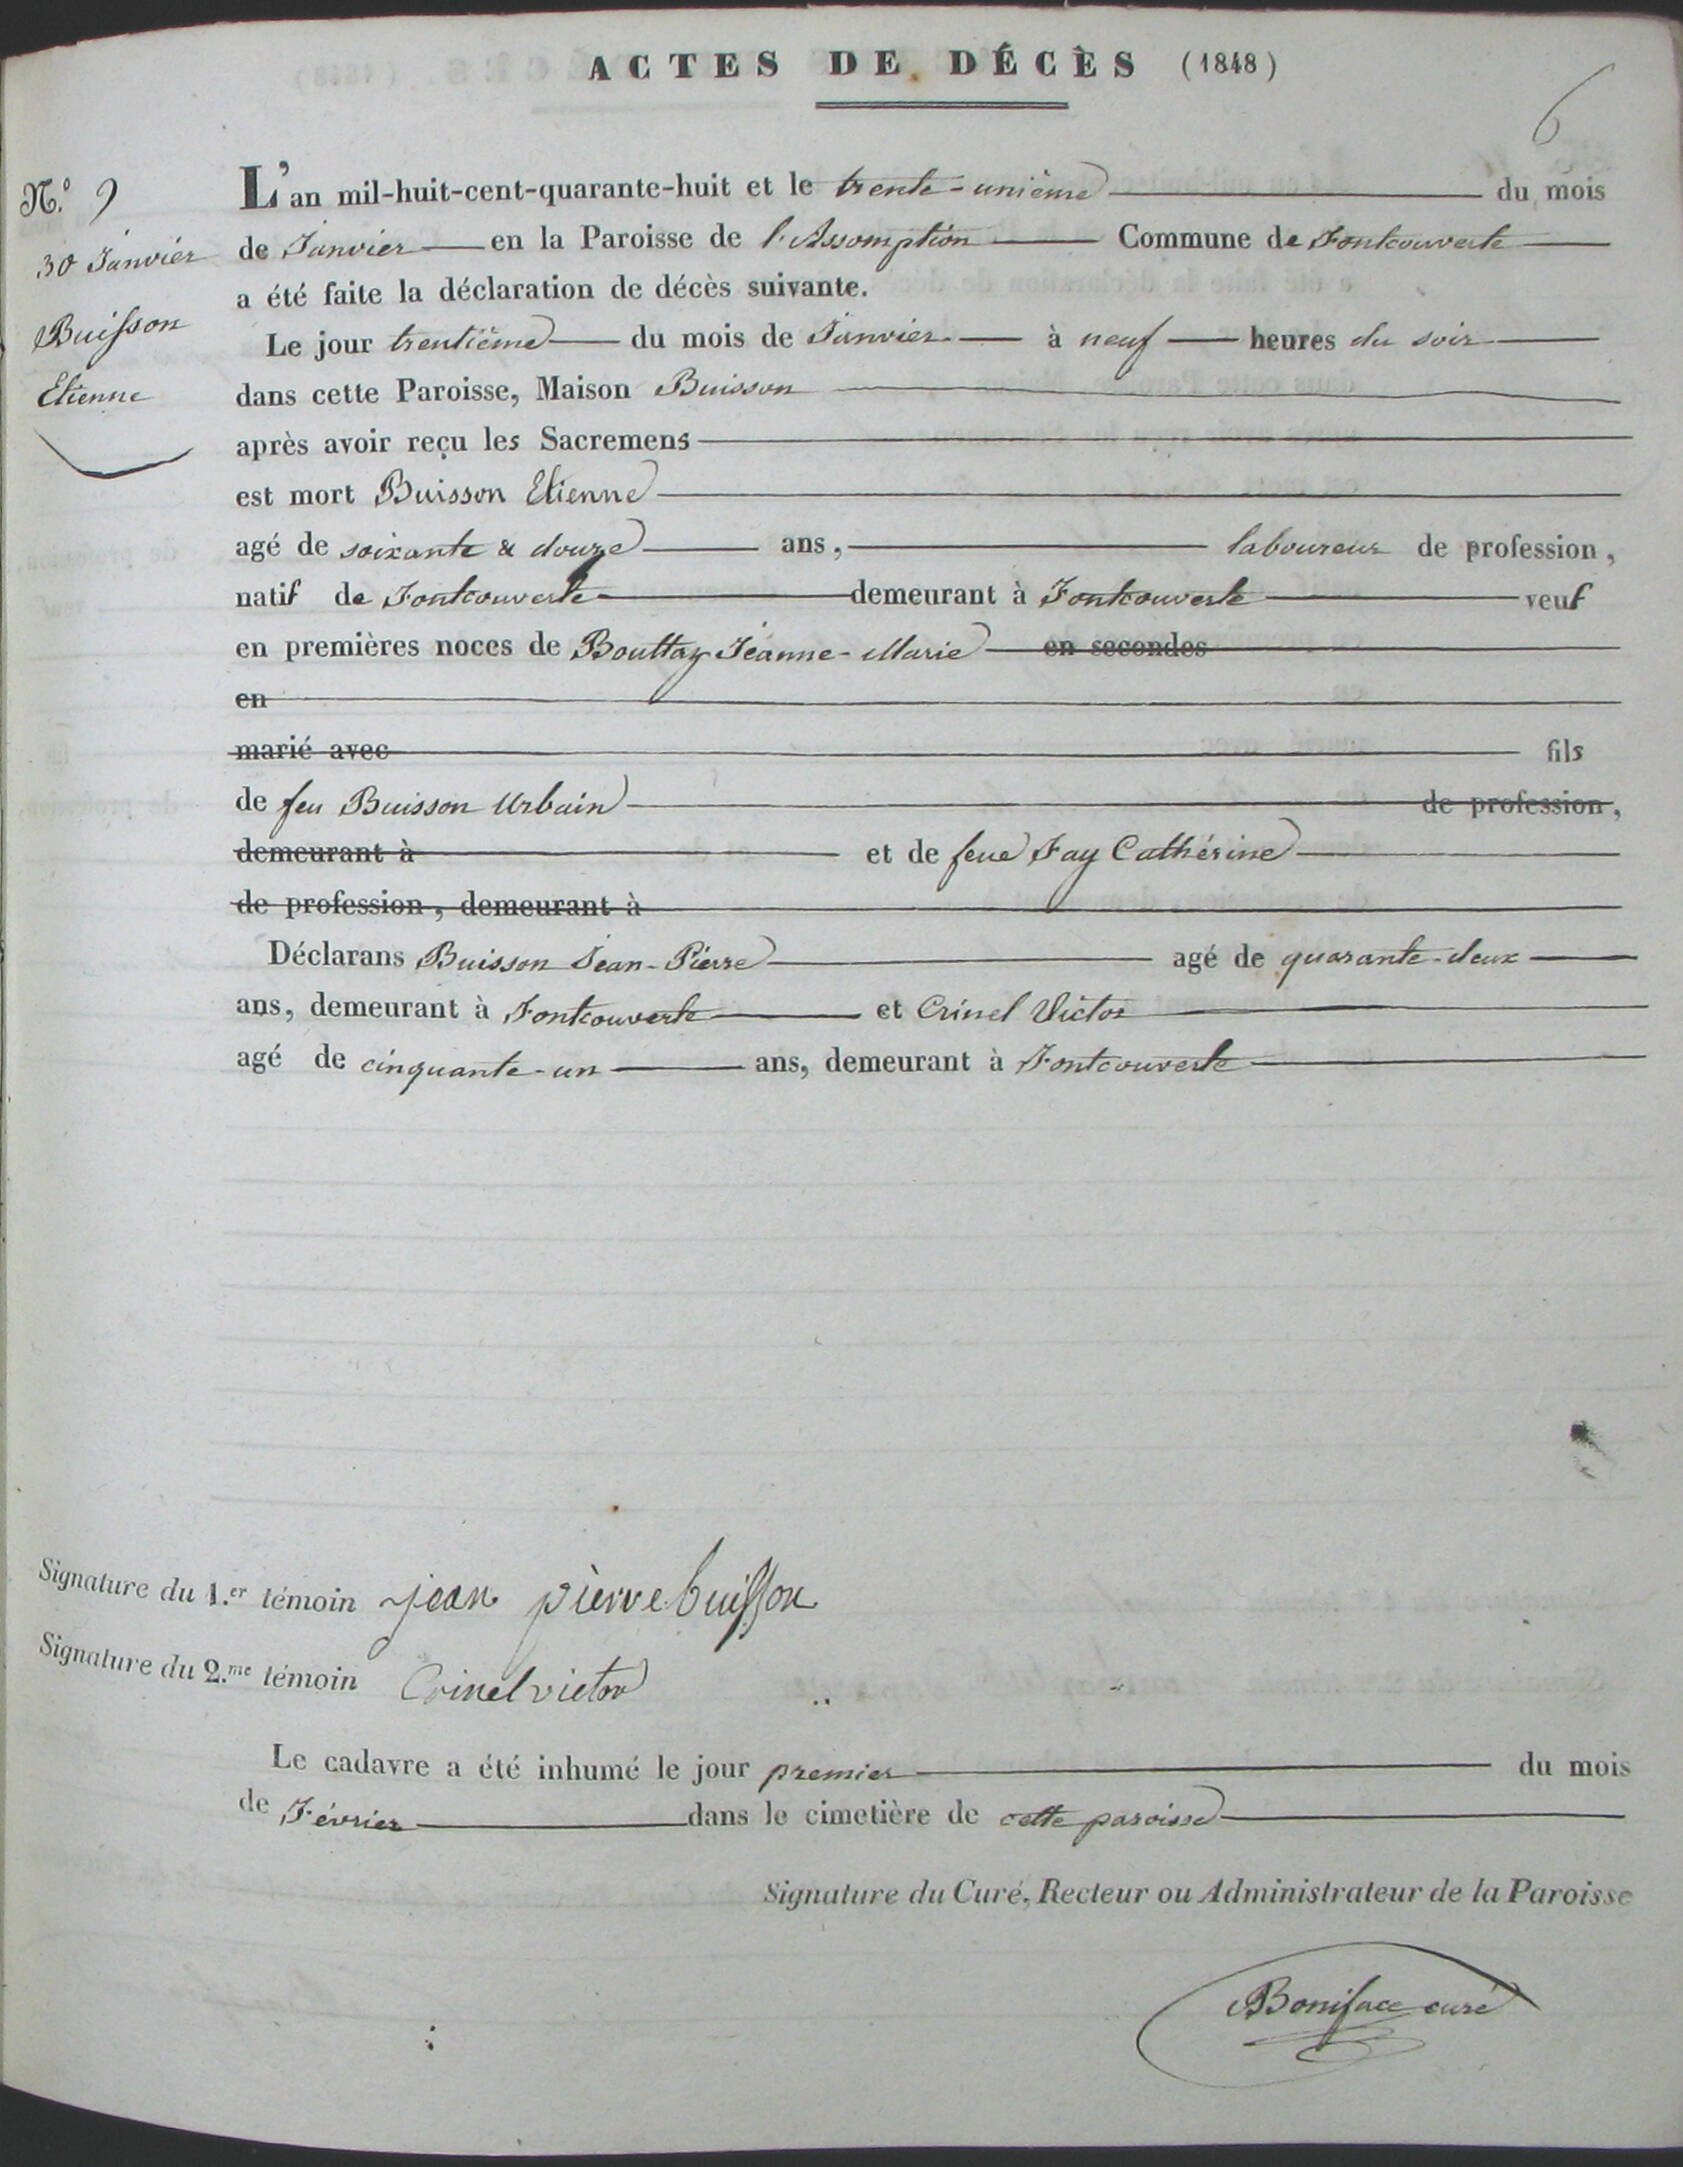 ACTES DE DÉCÈS (1848)
6
N.o 9
30 Janvier
Buisson
Etienne
L'an mil-huit-cent-quarante-huit et le trente-unième du mois
de Janvier en la Paroisse de l'Assomption Commune de Fontcouverte
a été faite la déclaration de décès suivante.
Le jour trentième du mois de Janvier à neuf heures du soir
dans cette Paroisse, Maison Buisson
après avoir reçu les Sacremens
est mort Buisson Etienne
agé de soixante & douze ans, laboureur de profession,
natif de Fontcouverte demeurant à Fontcouverte veuf
en premières noces de Bouttaz Jeanne-Marie en secondes
en
marié avec fils
de feu Buisson Urbain de profession,
demeurant à et de feue Fay Cathérine
de profession, demeurant à
Déclarans Buisson Jean-Pierre agé de quarante-deux
ans, demeurant à Fontcouverte et Crinel Victor
agé de cinquante-un ans, demeurant à Fontcouverte
Signature du 1.er témoin jean pierre buisson
Signature du 2.me témoin Crinel victor
Le cadavre a été inhumé le jour premier du mois
de Février dans le cimetière de cette paroisse
Signature du Curé, Recteur ou Administrateur de la Paroisse
Boniface curé